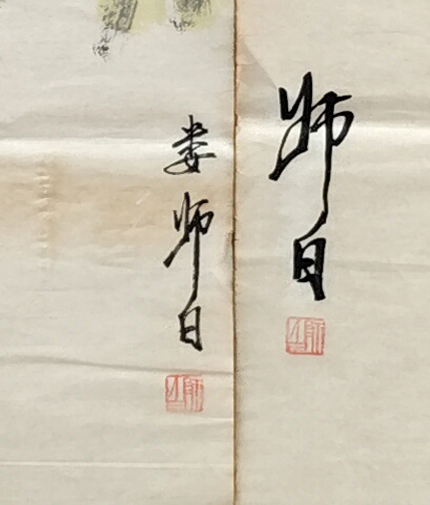 师白
娄师白